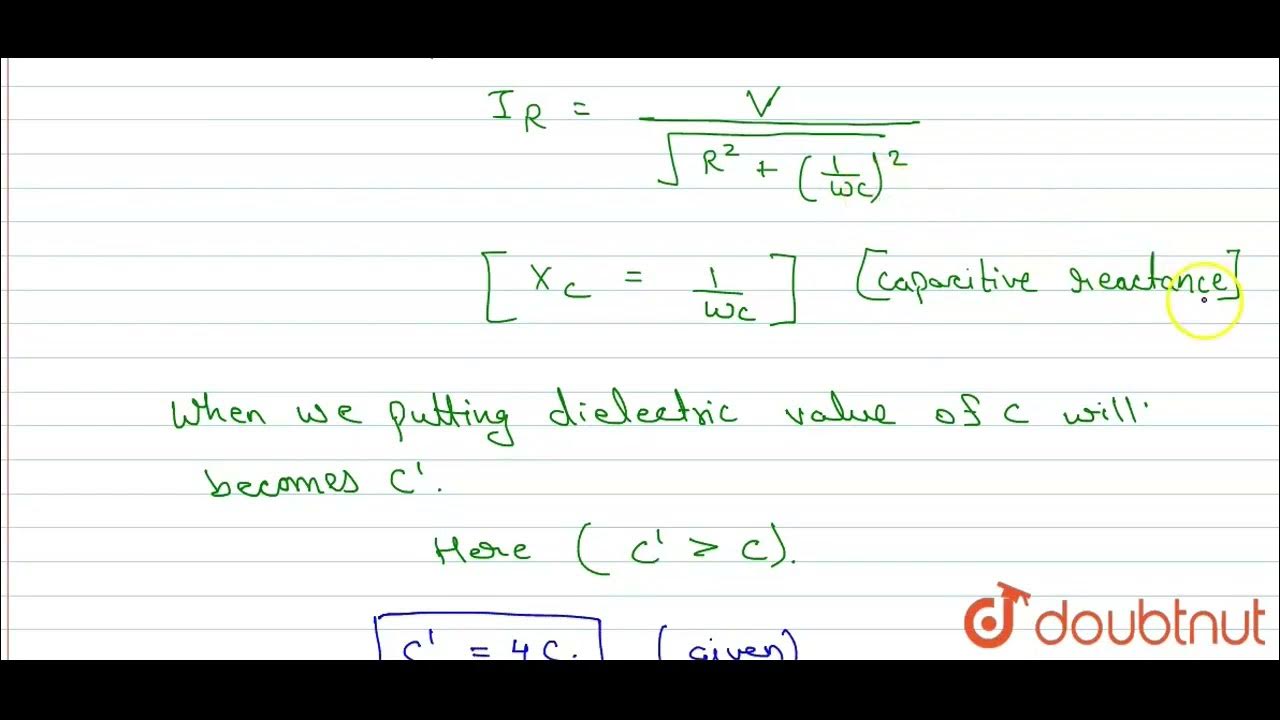 I_R = V / √(R² + (1/ωc)²)
[X_C = 1/ωc] [capacitive reactance]
When we putting dielectric value of c will
becomes c'.
Here (c' > c).
c' = 4c. (given)
doubtnut